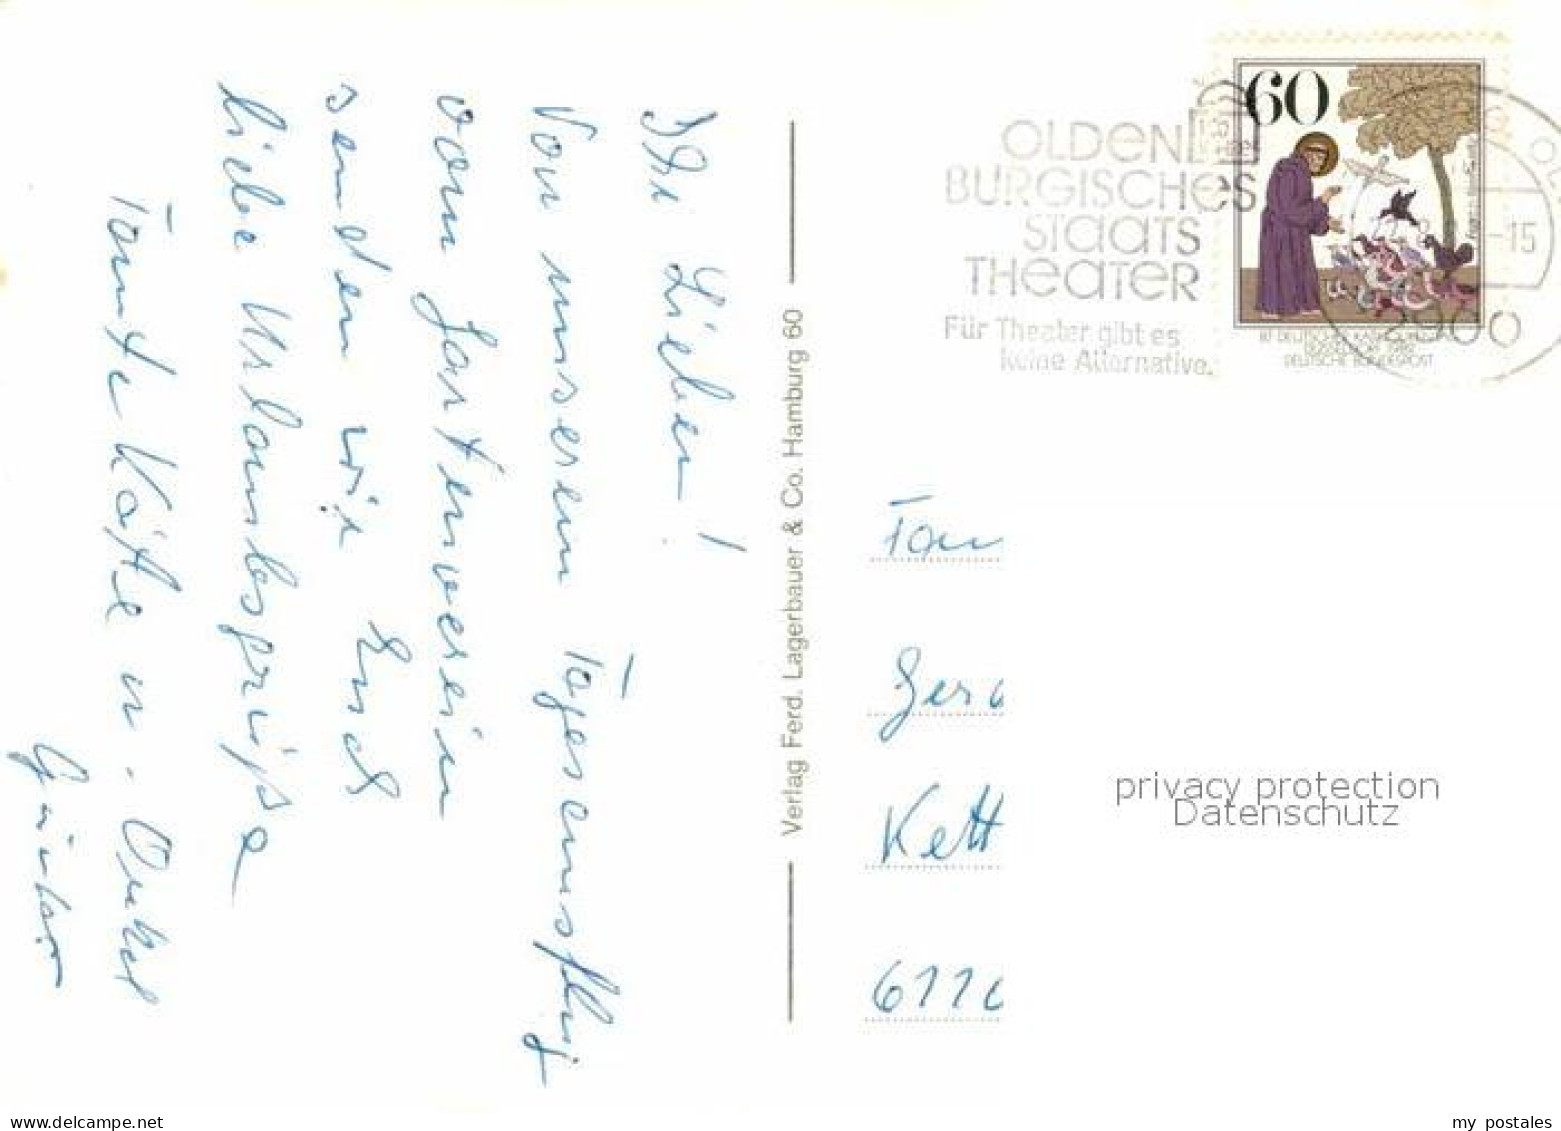 Ihr Lieben!
Von unserem Tagesausflug
vom Gartenverein
senden wir Euch
liebe Urlaubsgrüße
Tante Käthe u. Onkel
Günter
Verlag Ferd. Lagerbauer & Co. Hamburg 60
OLDEN
BURGISCHES
STAATS
THEATER
Für Theater gibt es
keine Alternative.
60
DEUTSCHE BUNDESPOST
-15
2900
Fam
Kett
privacy protection
Datenschutz
my-antiquarian.com
my postales